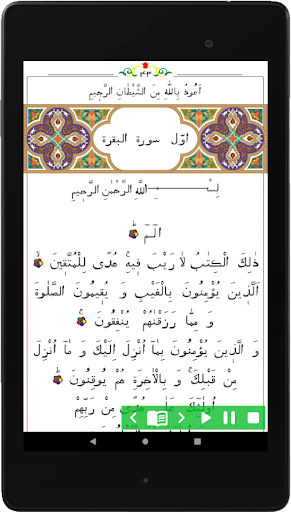 ۴۳
اَعُوذُ بِاللّٰهِ مِنَ الشَّيْطَانِ الرَّجٖيمِ
اوّل سورة البقرة
بِسْمِ اللّٰهِ الرَّحْمٰنِ الرَّحٖيمِ
الٓمٓ ۚ
ذٰلِكَ الْكِتٰبُ لَا رَيْبَ فٖيهِ ۚ هُدًى لِلْمُتَّقٖينَ ۙ
اَلَّذٖينَ يُؤْمِنُونَ بِالْغَيْبِ وَ يُقٖيمُونَ الصَّلٰوةَ
وَ مِمَّا رَزَقْنٰهُمْ يُنْفِقُونَ ۙ
وَ الَّذٖينَ يُؤْمِنُونَ بِمَٓا اُنْزِلَ اِلَيْكَ وَ مَٓا اُنْزِلَ
مِنْ قَبْلِكَ ۚ وَ بِالْاٰخِرَةِ هُمْ يُوقِنُونَ ۗ
اُولٰٓئِكَ عَلٰى هُدًى مِنْ رَبِّهِمْ